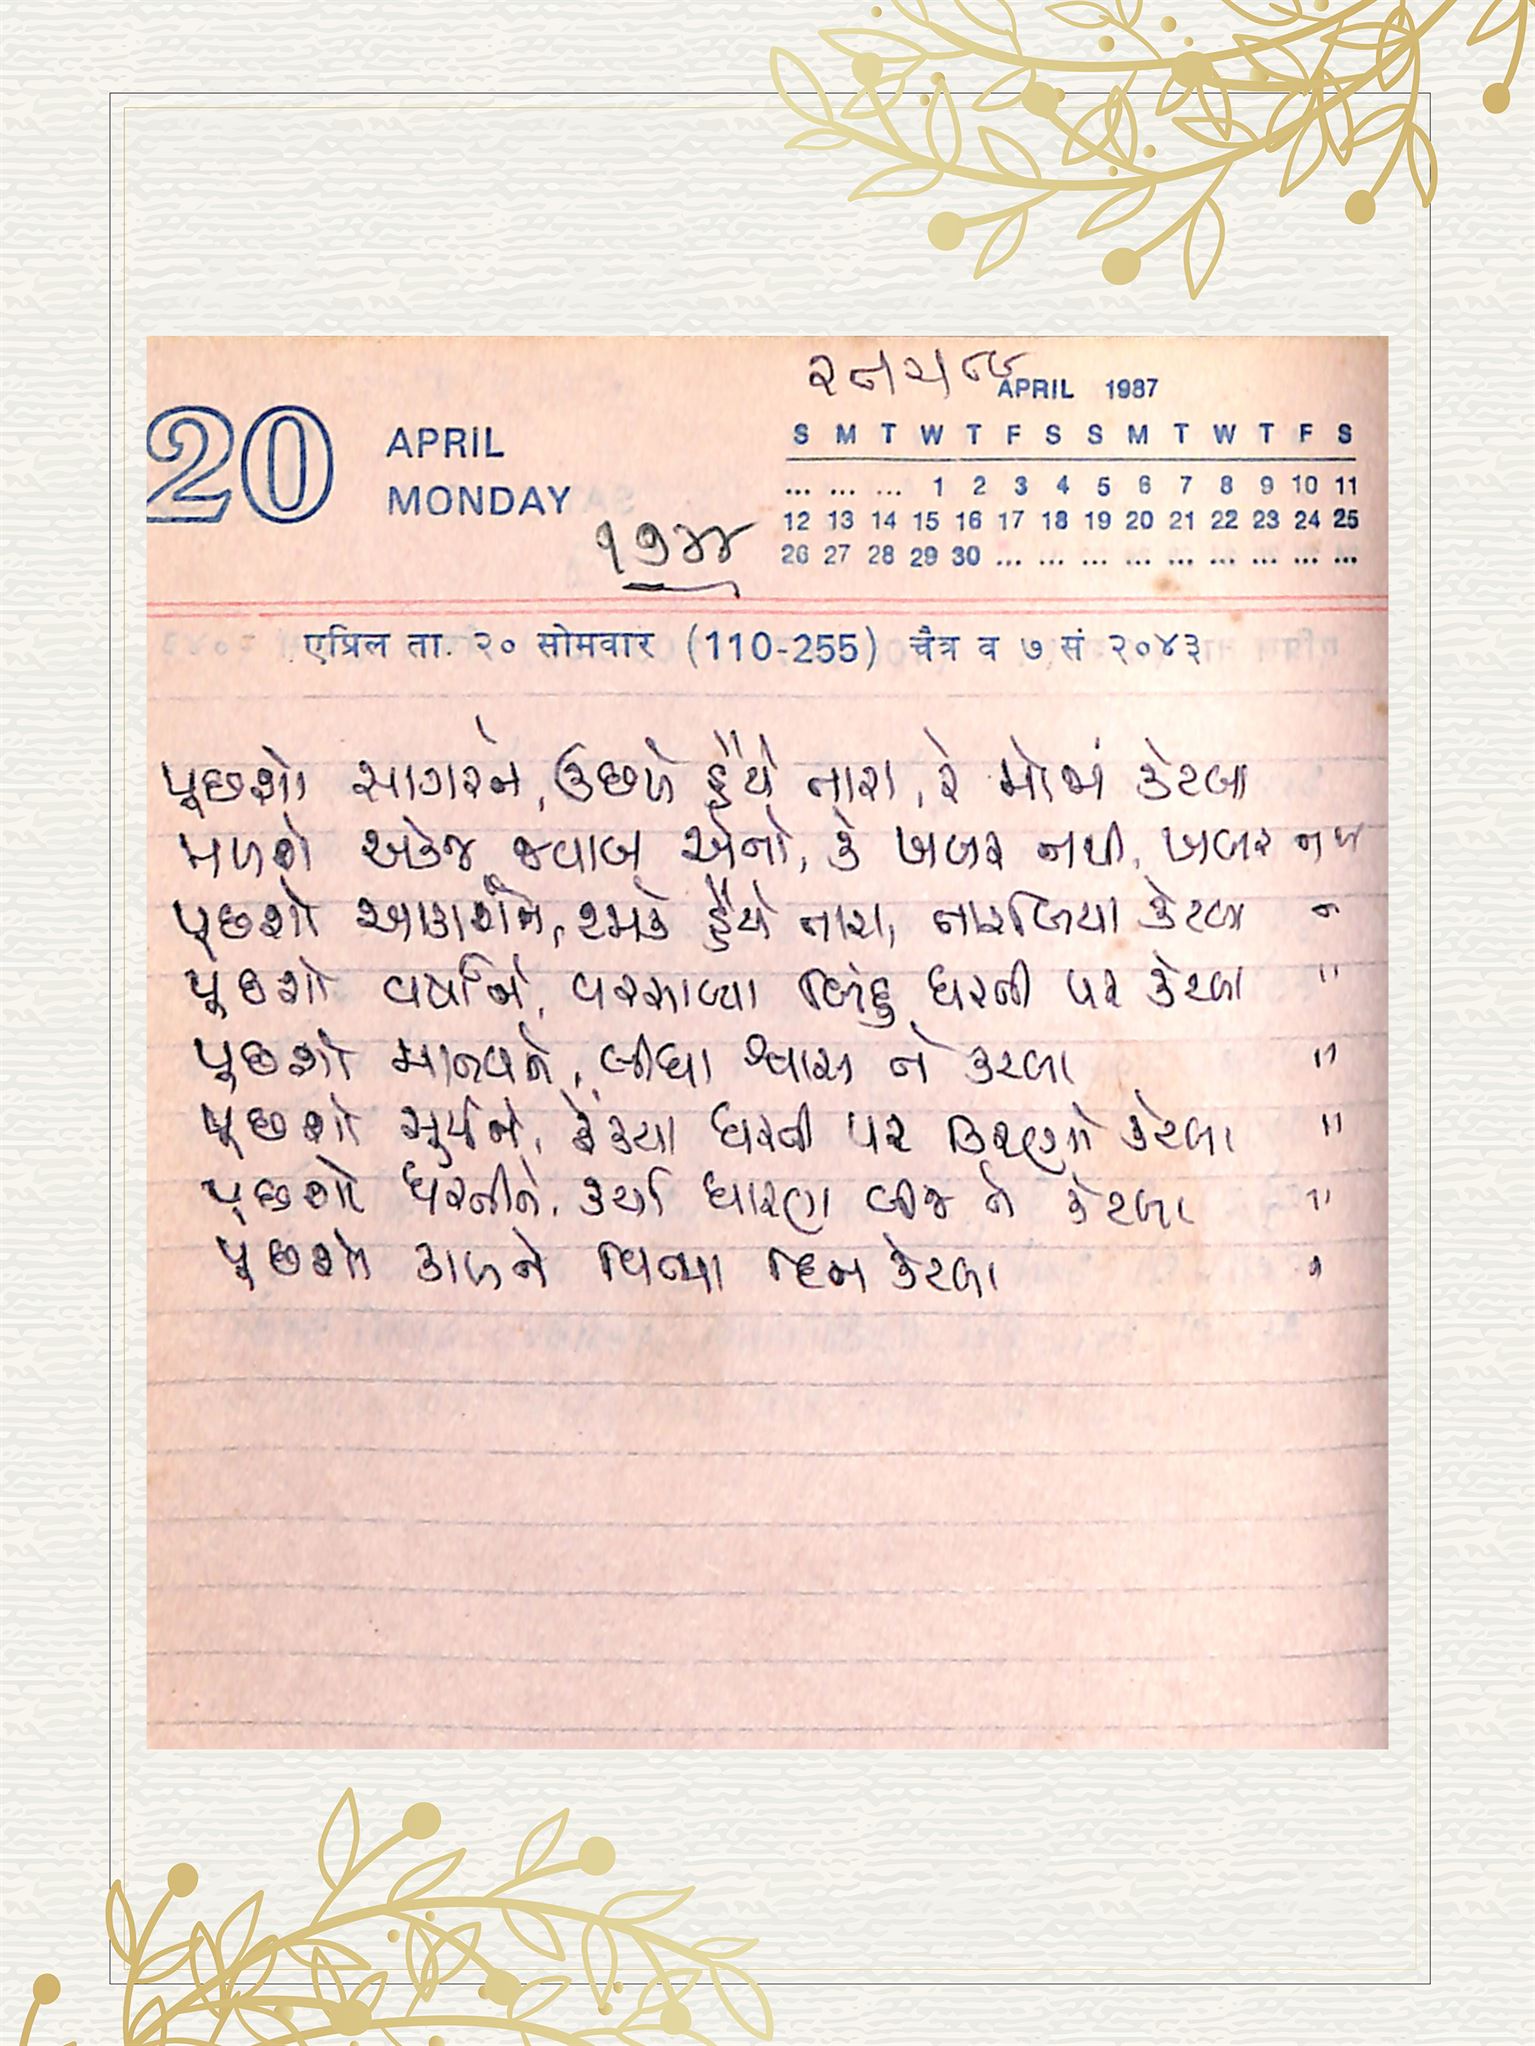 રત્નચય
APRIL 1987
20 APRIL
MONDAY
S M T W T F S S M T W T F S
... ... ... 1 2 3 4 5 6 7 8 9 10 11
12 13 14 15 16 17 18 19 20 21 22 23 24 25
26 27 28 29 30 ... ... ... ... ... ... ... ... ...
૧૭૪૪
एप्रिल ता. २० सोमवार (110-255) चैत्र व ७ सं २०४३
પૂછશો સાગરને, ઉછળે હૈયે તારા, રે મોજાં કેટલા
મળશે એકજ જવાબ એનો, કે ખબર નથી, ખબર નથી
પૂછશો આકાશને, ટમકે હૈયે તારા, તારલિયા કેટલા "
પૂછશો વર્ષાને, વરસાવ્યા બિંદુ ધરતી પર કેટલા "
પૂછશો માનવને, લીધા શ્વાસ તે કેટલા "
પૂછશો સૂર્યને, ફેંક્યા ધરતી પર કિરણો કેટલા "
પૂછશો ધરતીને, કર્યા ધારણ બીજ તે કેટલા "
પૂછશો કાળને વિત્યા દિન કેટલા "